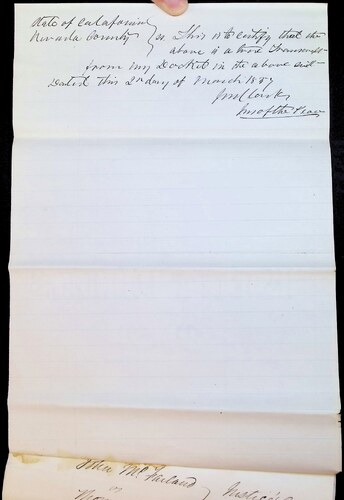 State of Calafornia
Nevada County } ss This is to certify that the
above is a true Transcript
from my Docket in the above enti-
Dated this 2nd day of March 1857
Jus of the Peace
John McFarland
vs